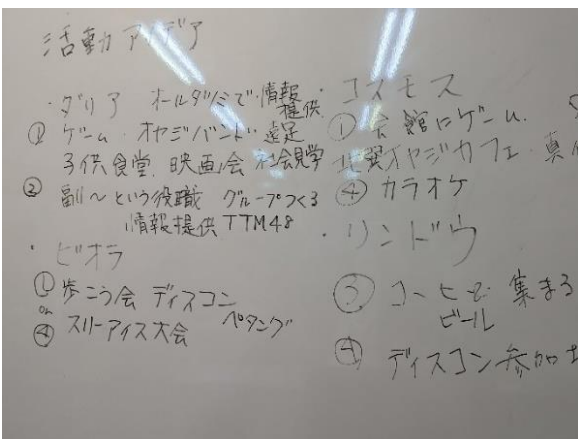 活動アイデア
・ダリア オールタツミで情報提供
① ゲーム・オヤジバンド 遠足
子供食堂 映画会 社会見学
② 副〜という役職 グループつくる
情報提供 TTM48
・ビオラ
① 歩こう会 ディスコン
④ スリーアイズ大会 ペタング
・コスモス
① 会館にゲーム
オヤジカフェ・
④ カラオケ
・リンドウ
③ コーヒー 集まろ
ビール
④ ディスコン参加